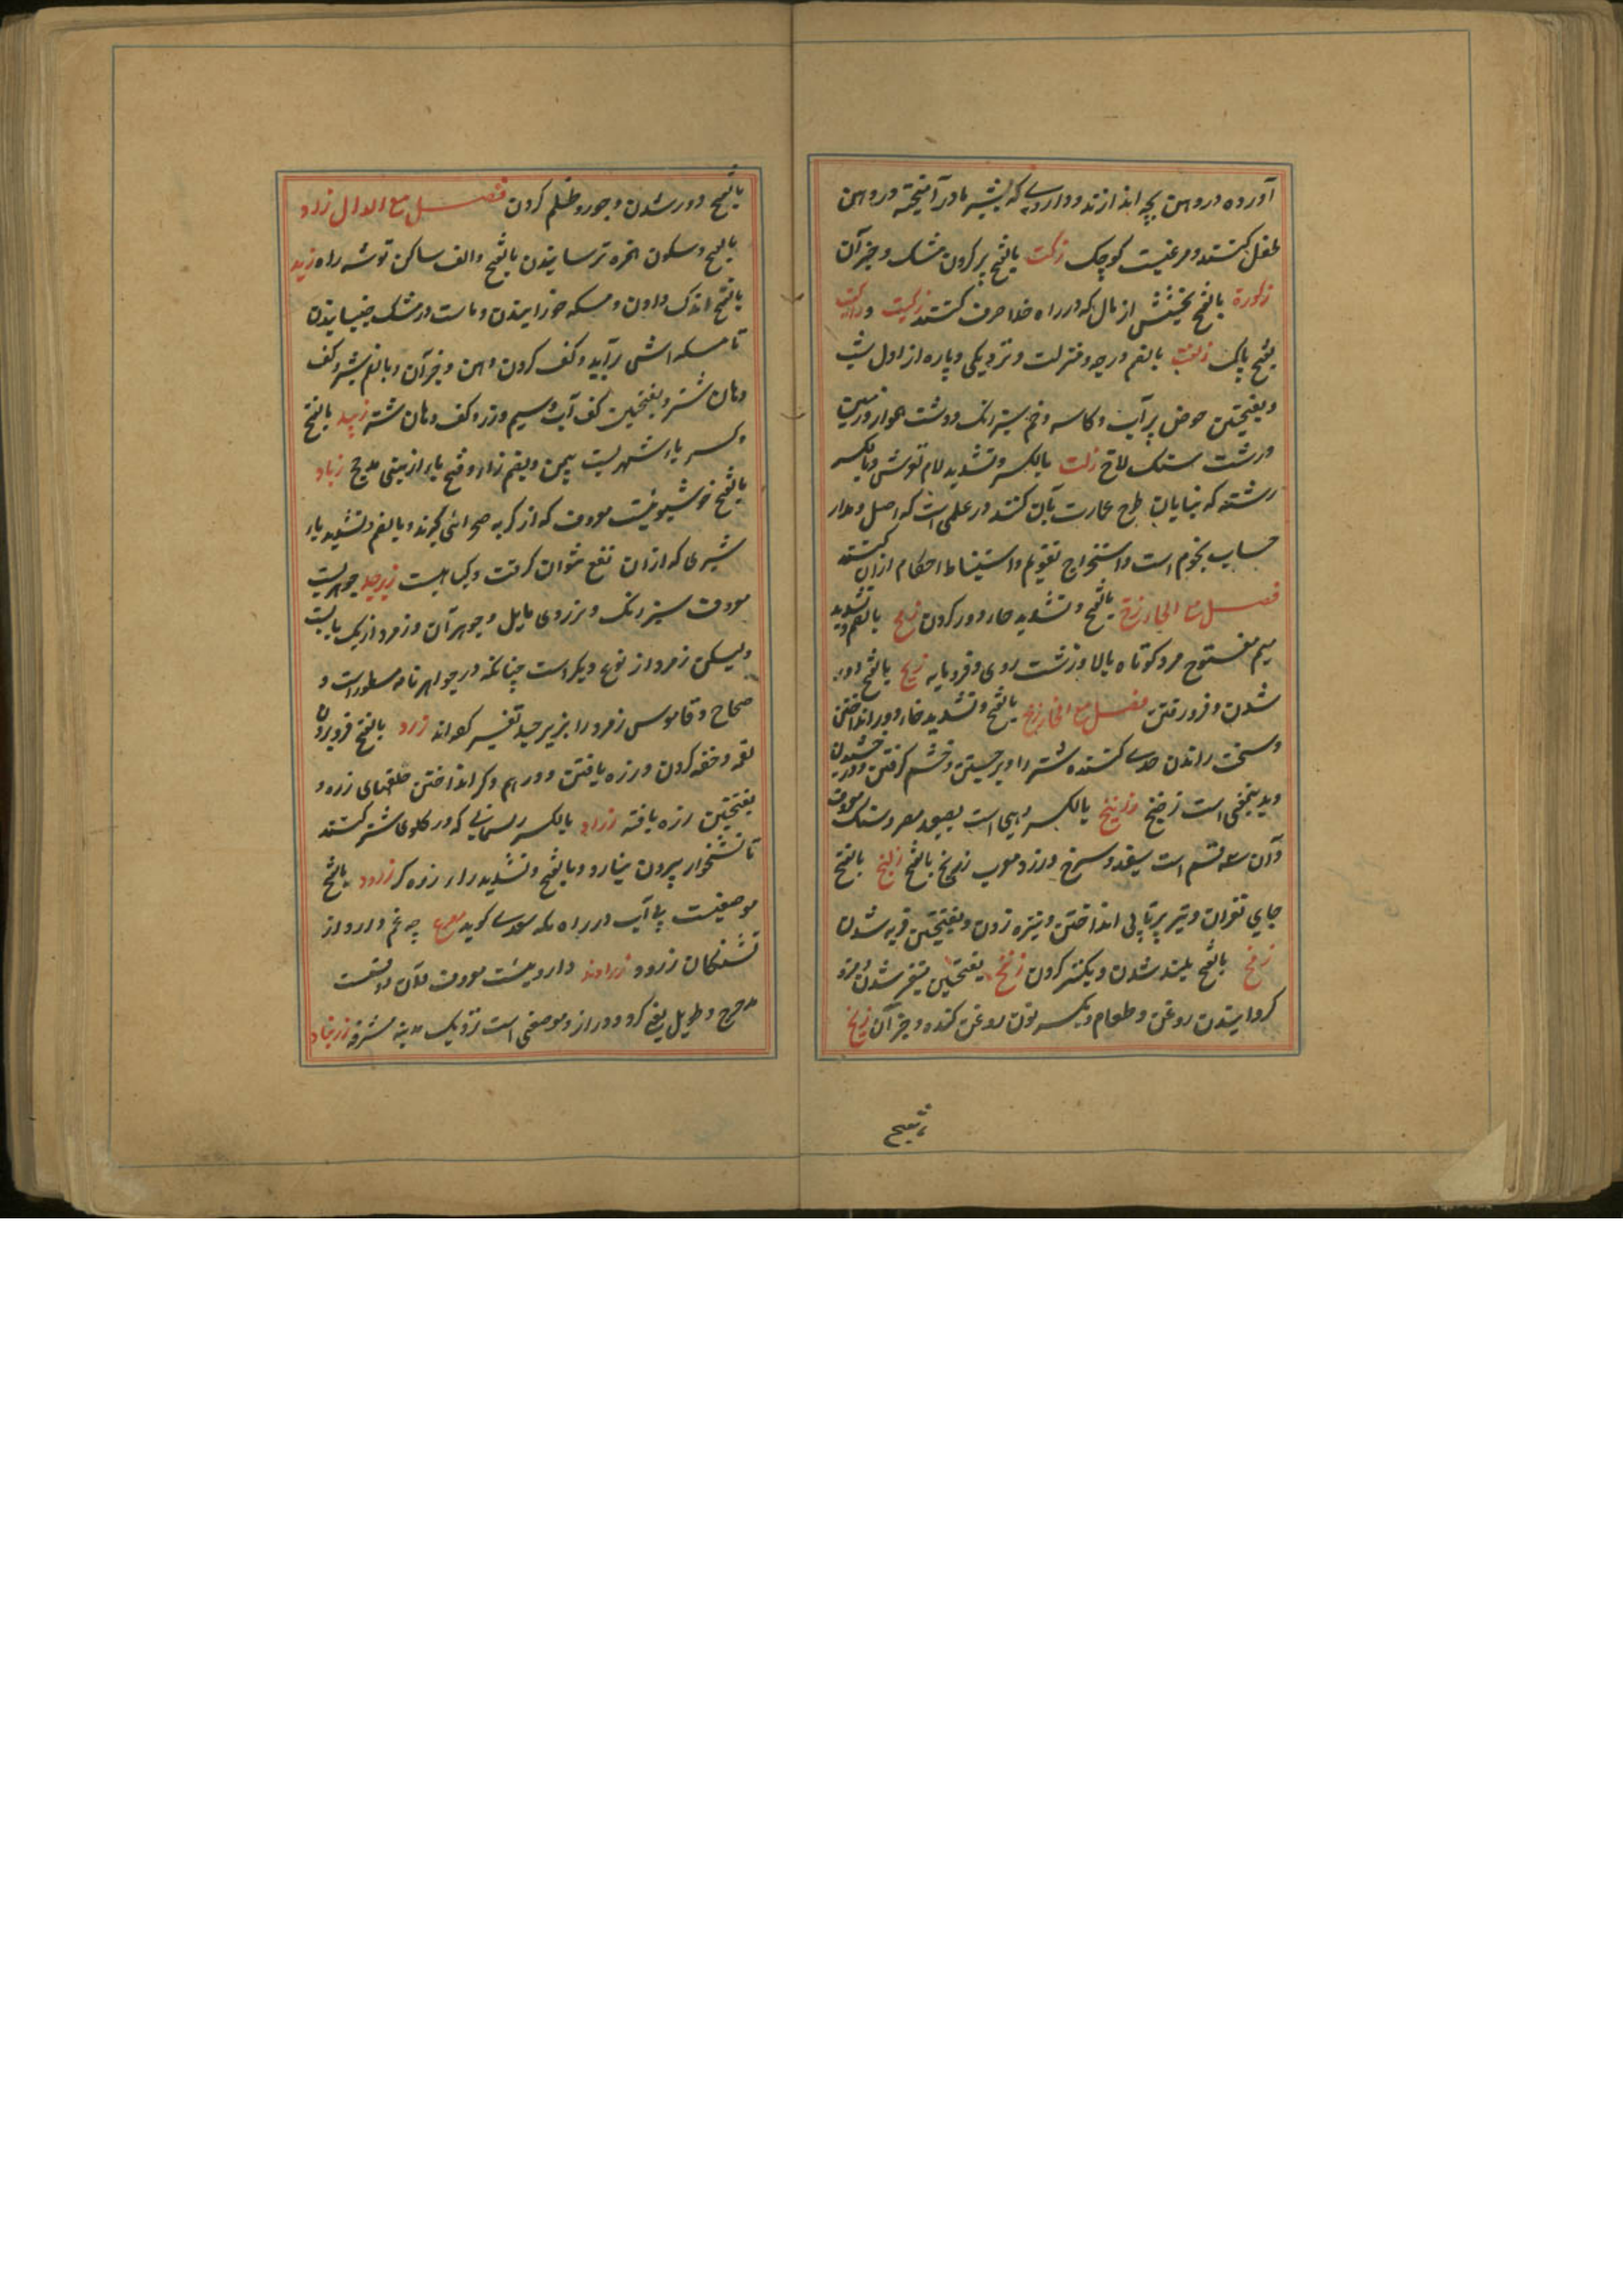 آورده در دهن بچه اندازند و داروی که بشیر مادر آمیخته در دهن
طفل کنند و مرغیست کوچک زکت بالفتح پر کردن مشک و جز آن
زکوة بالفتح بخشش از مال که در راه خدا صرف کنند زکیت
بفتح پاک زلفت بالضم درجه و منزلت و نزدیکی و پاره از اول شب
و بفتحتین حوض پر آب و کاسه و خم سبز رنگ و دشت هموار و زمین
درشت سنگ لاخ زلت بالکسر و تشدید لام توشش و بالکسر
رشته که بنایان طرح عمارت بآن کنند و علمی است که اصل و مدار
حساب نجوم است و استخراج تقویم و استنباط احکام ازان کنند
فصل مع الحاء زح بالفتح و تشدید حاء دور کردن زمح بالضم و تشدید
میم مفتوح مرد کوتاه بالا و زشت روی و فرومایه زیح بالفتح دور
شدن و فرو رفتن فصل مع الخاء زخ بالفتح و تشدید خاء دور انداختن
و سخت راندن حدی کننده شتر را و برجستن و خشم گرفتن و درخشیدن
و بدینمعنی است زخیخ زرنیخ بالکسر
و آن سه قسم است سفید و سرخ و زرد معرب زرنیخ بالفتح زلخ بالفتح
جای تیر پرتاب انداختن و نیزه زدن و بفتحتین فربه شدن
زمخ بالفتح بلند شدن و تکبر کردن زنخ بفتحتین متغیر شدن و مزه
گردانیدن روغن و طعام و بکسر نون روغن گنده و جز آن زیخ
بالفتح دور شدن و جور و ظلم کردن فصل مع الدال زاد
بالفتح و سکون همزه ترسانیدن بالفتح و الف ساکن توشه راه زبد
بالفتح اندک دادن و مسکه خورانیدن و ماست در مشک جنبانیدن
تا مسکه اش برآید و کف کردن دهن و جز آن و بالضم شیر و کف
دهان شتر و بفتحتین کف آب و سیم و زر و کف دهان شتر زبید بالفتح
و کسر باء شهریست بیمن و بضم زاء و فتح باء از بنی مذحج زباد
بالفتح خوشبوئیست معروف که از گربه صحرائی گیرند و بالضم و تشدید باء
شیری که ازان نفع نتوان گرفت و گیاهیست زبرجد جوهریست
معروف سبز رنگ و بزردی مایل و جوهر آن و زمرد از یک بابت
ولیکن زمرد از نوع دیگر است چنانکه در جواهرنامه مسطور است و
صحاح و قاموس زمرد را بزبرجد تفسیر کرده اند زرد بالفتح فرو بردن
لقمه و خفه کردن و زره بافتن و در هم و گر انداختن حلقهای زره و
بفتحتین زره بافته زراد بالکسر ریسمانی که در گلوی شتر کنند
تا نشخوار بیرون نیارد و بالفتح و تشدید راء زره گر زرود بالفتح
موضعیست بی آب در راه مکه سعدی گوید مصرع چه غم دارد از
تشنگان زرود زراوند داروئیست معروف و آن دو قسمست
مدحرج و طویل یعنی گرد و دراز و موضعی است نزدیک مدینه مشرفه زرنباد